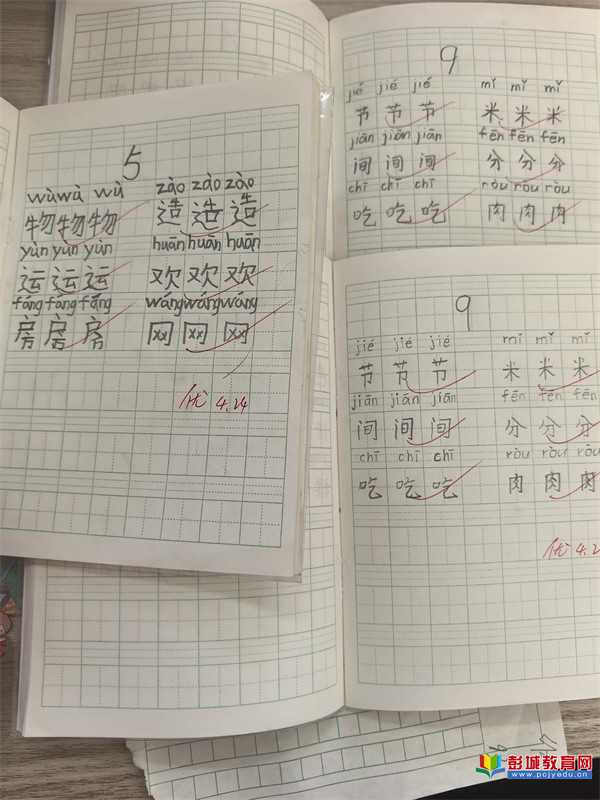 5
wù wù wù zào zào zào
物 物 物 造 造 造
yùn yùn yùn huān huān huān
运 运 运 欢 欢 欢
fáng fáng fáng wǎng wǎng wǎng
房 房 房 网 网 网
优 4.24
9
jié jié jié mǐ mǐ mǐ
节 节 节 米 米 米
jiān jiān jiān fēn fēn fēn
间 间 间 分 分 分
chī chī chī ròu ròu ròu
吃 吃 吃 肉 肉 肉
9
jié jié jié mǐ mǐ mǐ
节 节 节 米 米 米
jiān jiān jiān fēn fēn fēn
间 间 间 分 分 分
chī chī chī ròu ròu ròu
吃 吃 吃 肉 肉 肉
优 4.24
彭城教育网
www.pcjyedu.cn